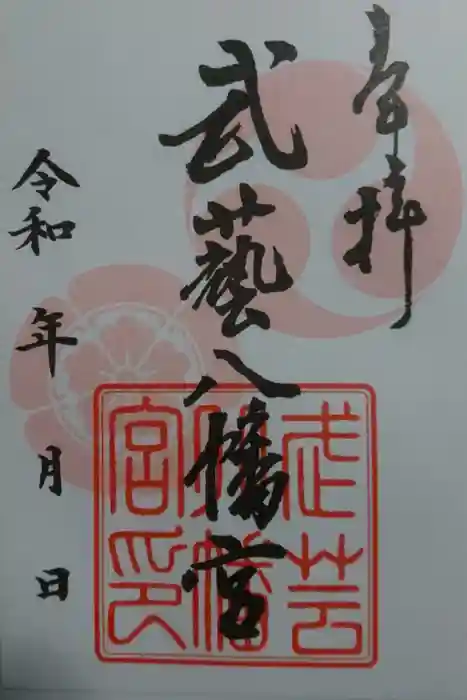 奉拝
武藝八幡宮
令和 年 月 日
武芸
八幡
宮印